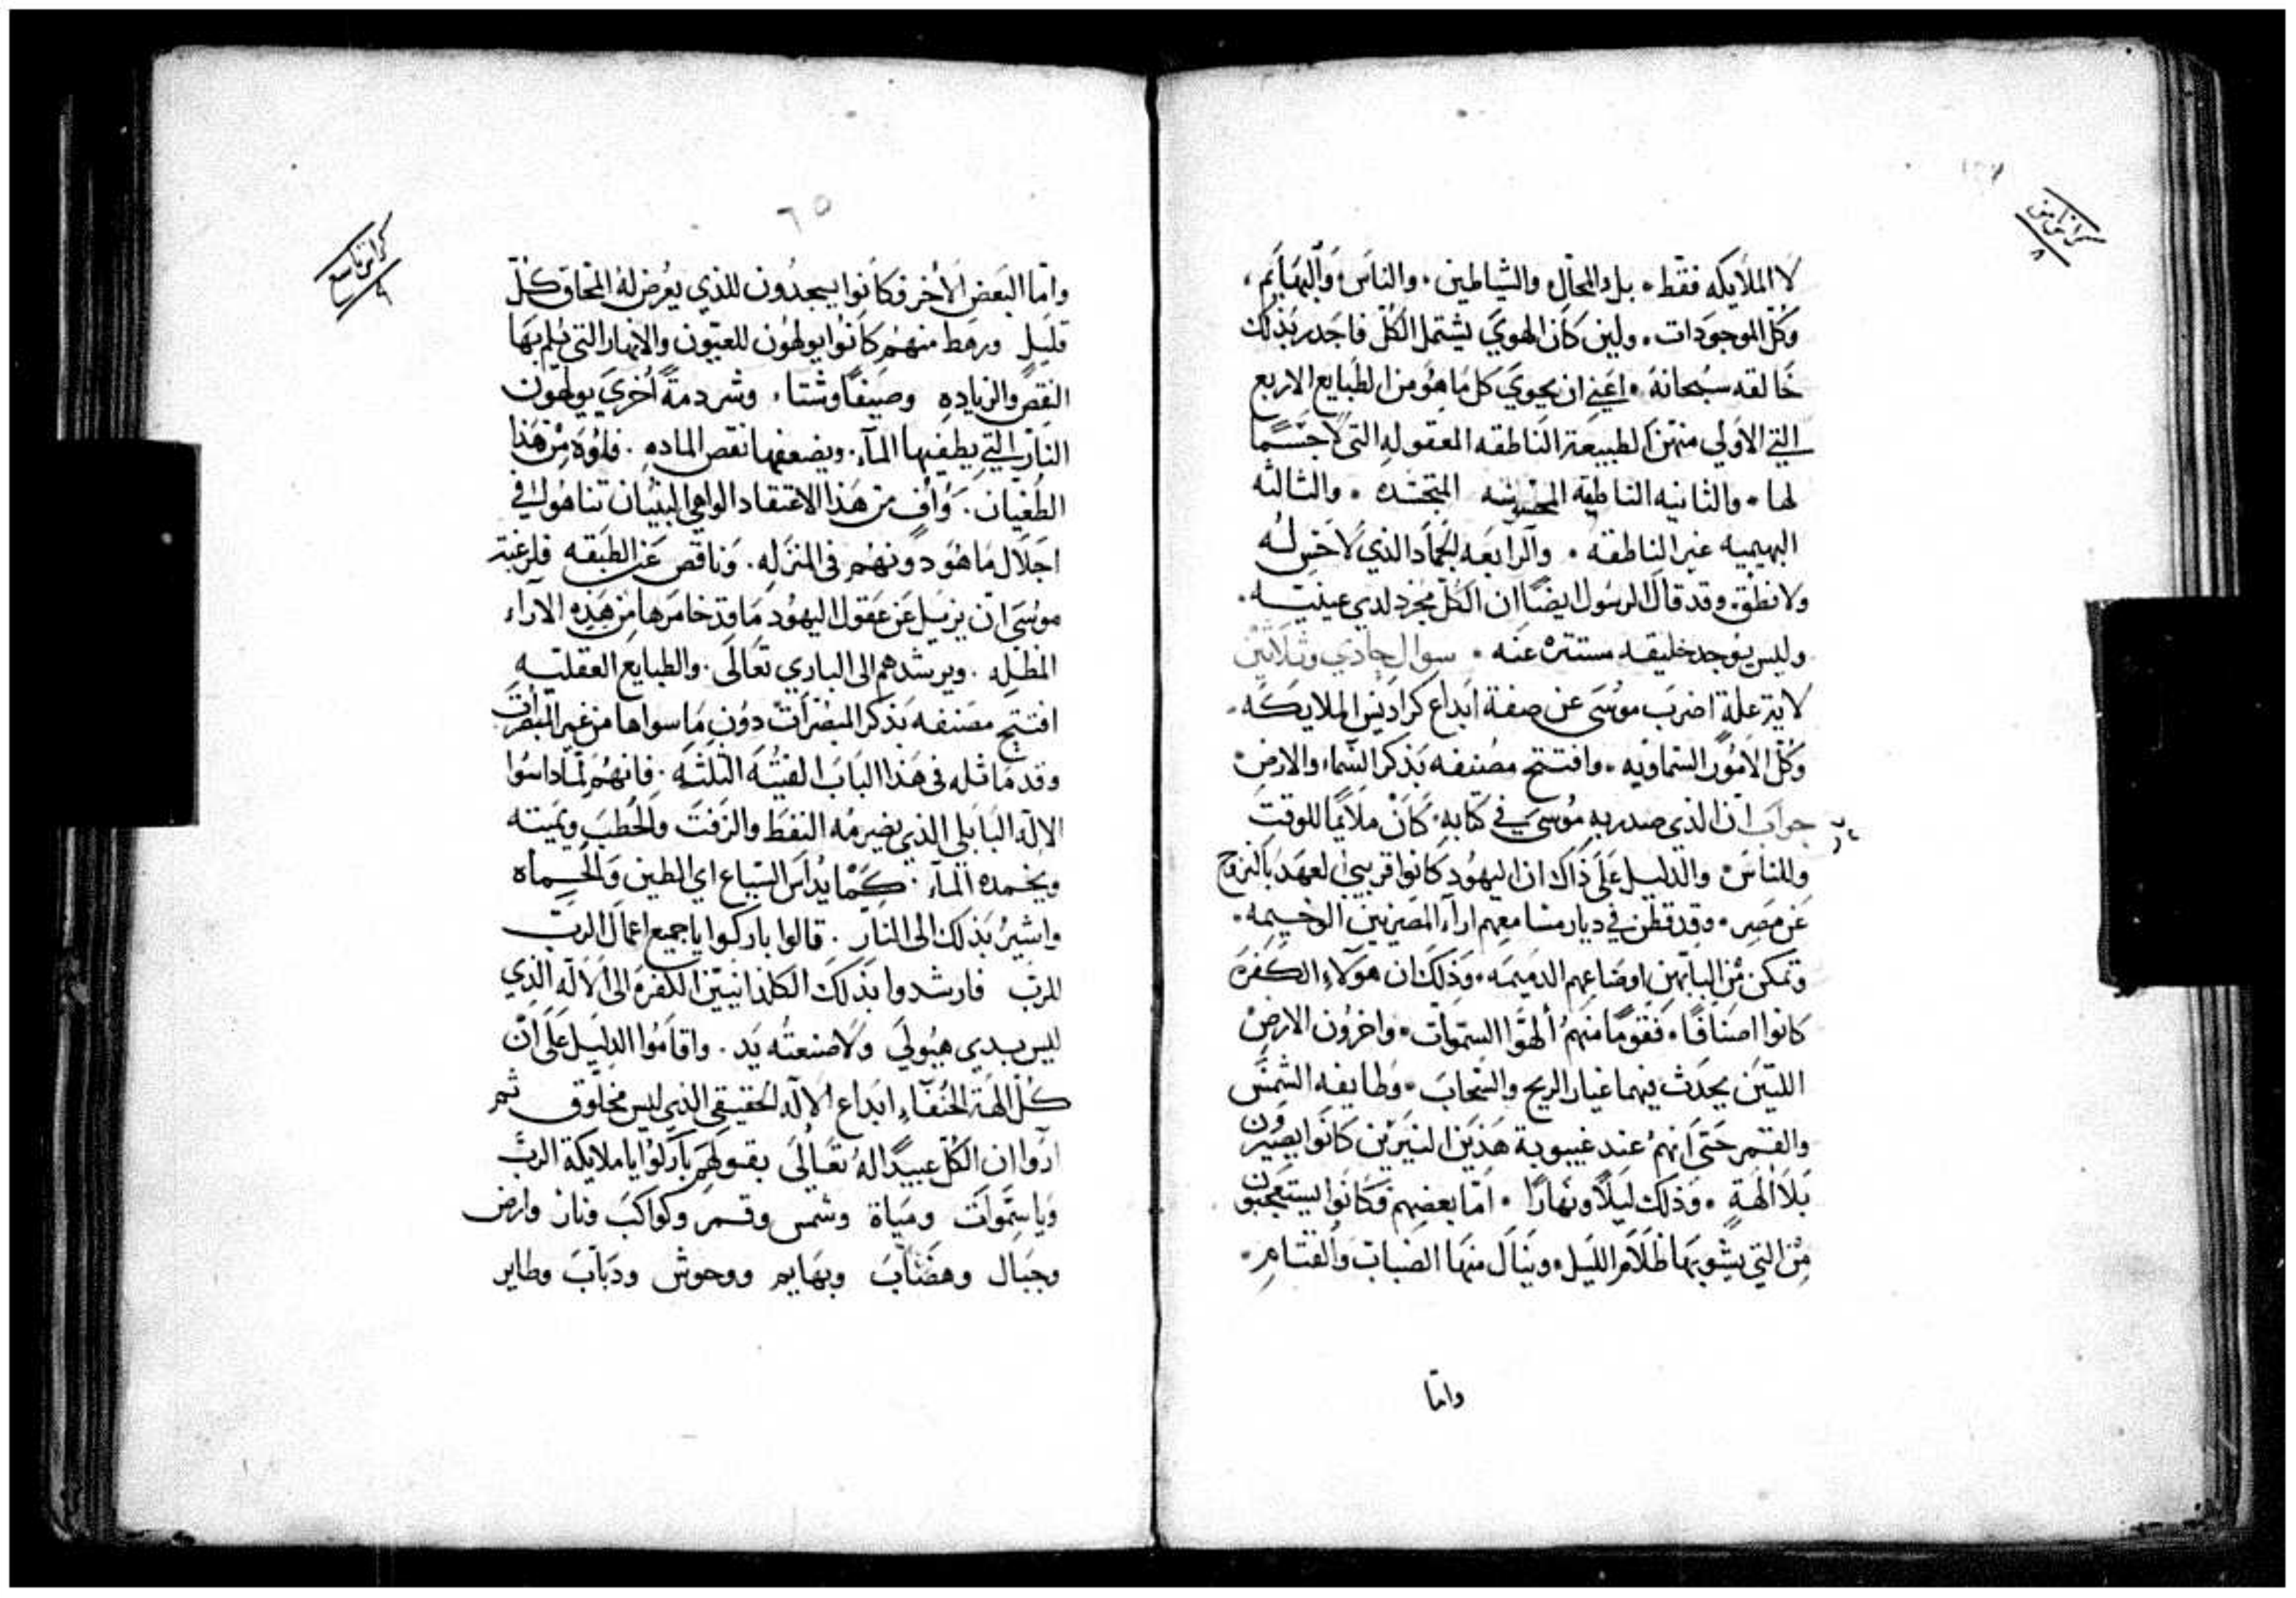 كراس ثامن
٨
لا الملايكه فقط. بل والمحال والشياطين. والناس والبهايم.
وكل الموجودات. ولين كان الهوي يشتمل الكل فاجدر بذلك
خالقه سبحانه. اعني ان يحوي كل ما هو من الطبايع الاربع
التي الاولي منهن الطبيعة الناطقه المعقوله التي لا جسم
لها. والثانيه الناطقه المتجسده. والثالثه
البهيميه غير الناطقه. والرابعه الجماد الذي لا حس له
ولا نطق. وقد قال الرسول ايضًا ان الكل مجرد لدي عينيه.
وليس يوجد خليقه مستتره عنه. سوال حادي وثلاثين
لاية علة اضرب موسى عن صفة ابداع كراديس الملايكه.
وكل الامور السماويه. وافتتح مصنفه بذكر السماء والارض
جواب ان الذي صدر به موسي في كتابه. كان ملايمًا للوقت
وللناس والدليل على ذاك ان اليهود كانوا قريبي العهد بالنزوح
عن مصر. وقد قطن في ديار مشامعهم اراء المصريين الوخيمه.
وتمكن من البابهن اوضاعهم الدميمه. وذلك ان هولاء الكفره
كانوا اصنافًا. فقومًا منهم ألهوا السموات. واخرون الارض
اللتين يحدث فيهما غبار الريح والسحاب. وطايفه الشمس
والقمر حتى انهم عند غيبوبة هذين النيرين كانوا يصيرون
بلا الهة. وذلك ليلاً ونهارًا. اما بعضهم فكانوا يستعجبون
من التي يشوبها ظلام الليل. وينال منها الضباب والقتام.
واما
٦٥
كراس تاسع
٩
واما البعض الأخر فكانوا يسجدون للذي يعرض له المحاق كل
قليل ورهط منهم كانوا يولهون للعيون والانهار التي يلم بها
النقص والزياده وصيفًا وشتا، وشردمةً أخري يولهون
النار التي يطفيها الماء. ويضعفها نقص الماده. فلوه من هذا
الطغيان. وأف من هذا الاعتقاد الواهي البنيان تناهوا في
اجلال ما هو دونهم في المنزله. وناقص عن الطبقه فلرغبة
موسى ان يزيل عن عقول اليهود ما قد خامرها من هذه الاراء
المظله. ويرشدهم الى الباري تعالى. والطبايع العقليه
افتتح مصنفه بذكر المبصرات دون ما سواها من غير المبصرات
وقد ماثله في هذا الباب الفتيه الثلثه. فانهم لما داسوا
الاله البابلي الذي يضرمه النفط والزفت والحطب ويميته
ويخمده الماء. كما يداس السياع اي الطين والحماه
واشير بذلك الى النار. قالوا باركوا يا جميع اعمال الرب
للرب فارشدوا بذلك الكلدانيين الكفره الى الاله الذي
ليس بدي هيولي ولا صنعته يد. واقاموا الدليل على ان
كل الهة الحنفاء ابداع الاله الحقيقي الذي ليس مخلوق ثم
اروا ان الكل عبيدًا له تعالي بقولهم باركوا يا ملايكة الرب
ويا سموات ومياة وشمس وقمر وكواكب ونار وارض
وجبال وهضاب وبهايم ووحوش ودباب وطاير